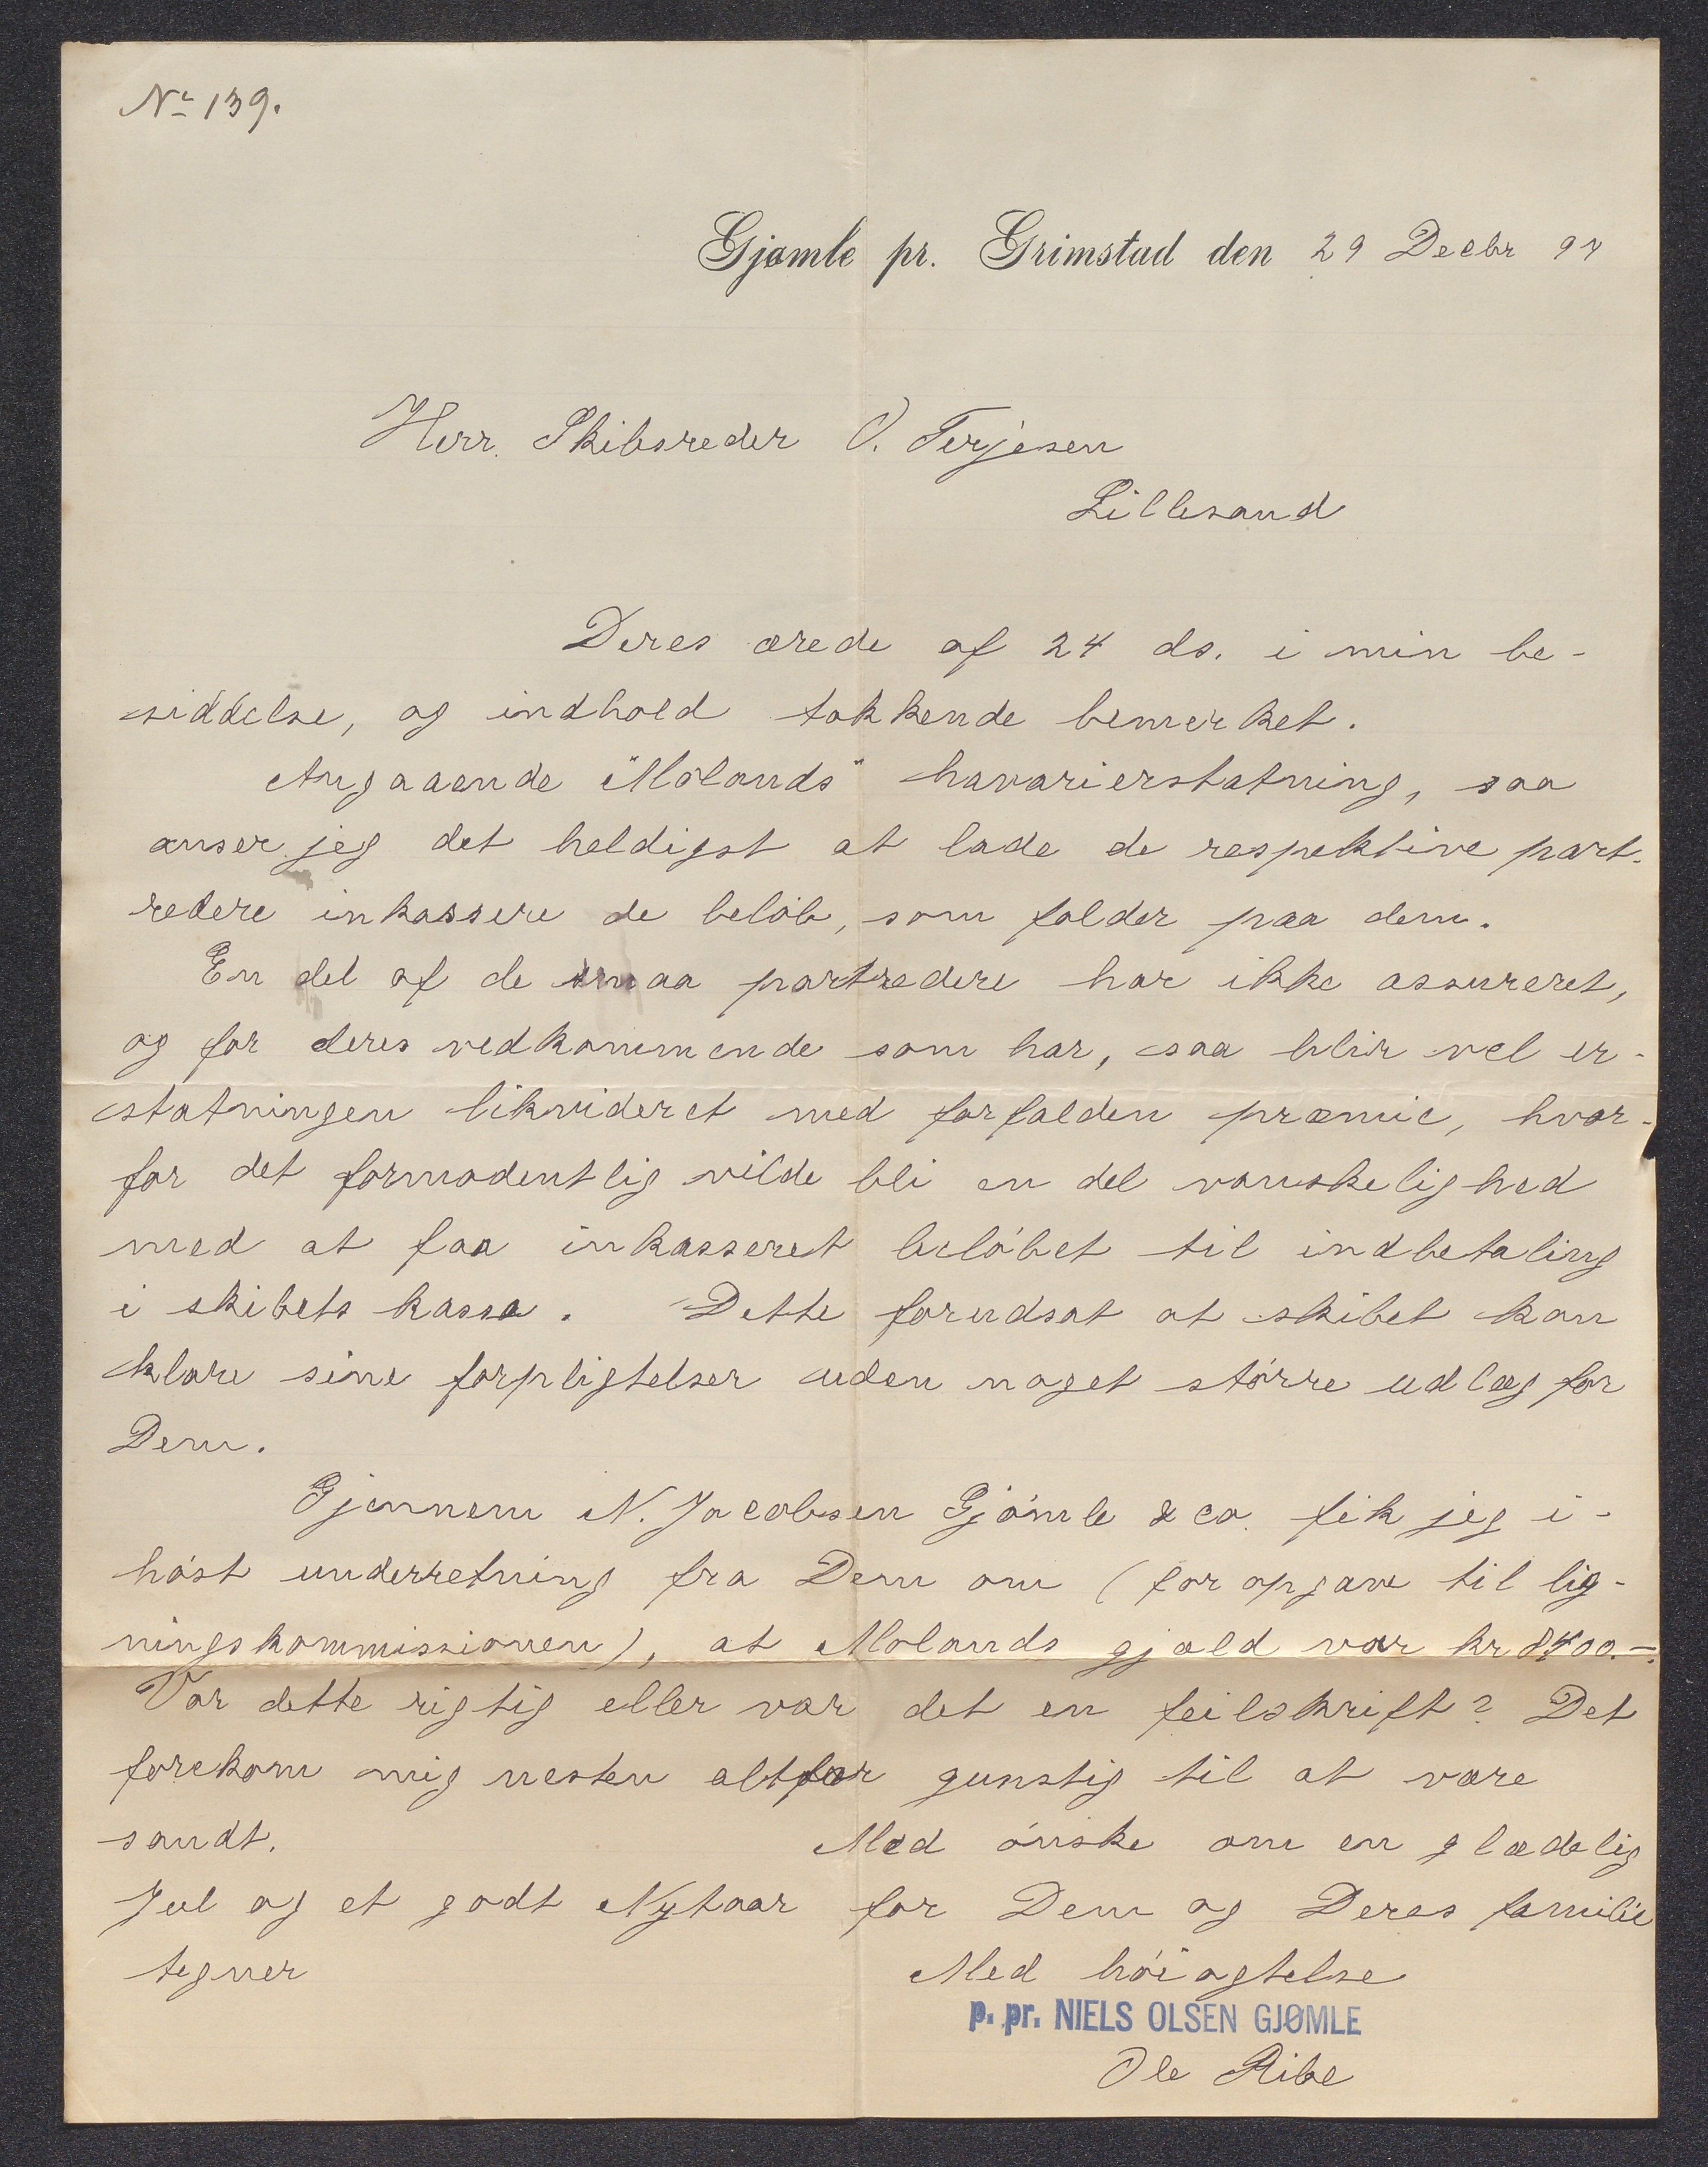 No 139.
Gjømle pr. Grimstad den 29 Decbr 94
Herr. Skibsreder O. Terjesen
Lillesand
Deres ærede af 24 ds. i min be-
siddelse, og indhold takkende bemerket.
Angaaende "Molands" havarierstatning, saa
anser jeg det heldigst at lade de respektive part-
redere inkassere de beløb, som falder paa dem.
En del af de smaa partredere har ikke assureret,
og for deres vedkommende som har, saa blir vel er-
statningen likvideret med forfalden præmie, hvor-
for det formodentlig vilde bli en del vanskelighed
med at faa inkasseret beløbet til indbetaling
i skibets kassa. Dette forudsat at skibet kan
klare sine forpligtelser uden noget større udlæg for
Dem.
Gjennem N. Jacobsen Gjømle & co. fik jeg i-
høst underretning fra Dem om (for opgave til lig-
ningskommissionen), at Molands gjæld var kr 8400.-.
Var dette rigtig eller var det en feilskrift? Det
forekom mig nesten altfor gunstig til at være
sandt. Med ønske om en glædelig
Jul og et godt Nytaar for Dem og Deres familie
tegner Med høiagtelse
p. pr. NIELS OLSEN GJØMLE
Ole Ribe